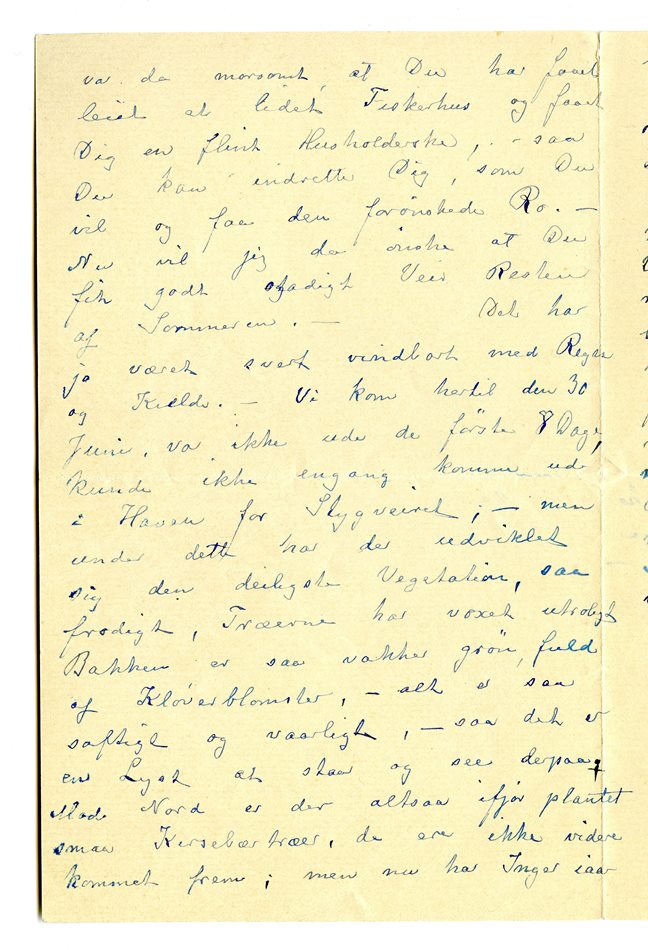 var da morsomt, at Du har faaet
leiet et lidet Fiskerhus og faaet
Dig en flink Husholderske, - saa
Du kan indrette Dig, som Du
vil og faa den forönskede Ro. -
Nu vil jeg da önske at Du
fik godt stadigt Veir Resten
af Sommeren. - Det har
jo været svert vindhart med Regn
og Kulde. - Vi kom hertil den 30
Juni, var ikke ude de förste 8 Dage,
kunde ikke engang komme ud
i Haven for Stygveiret; - men
under dette har der udviklet
sig den deiligste Vegetation, saa
frodigt, Træerne har voxet utroligt
Bakken er saa vakker grön, fuld
af Klöverblomster, - alt er saa
saftigt og vaarligt, - saa det er
en Lyst at staa og see derpaa
Mod Nord er der altsaa ifjor plantet
smaa Kirsebærtræer, de ere ikke videre
kommet frem; men nu har Inger iaar